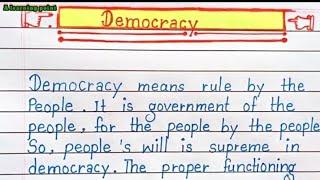 A learning point
Democracy
Democracy means rule by the
People. It is government of the
people, for the people by the people
So, people's will is supreme in
democracy. The proper functioning